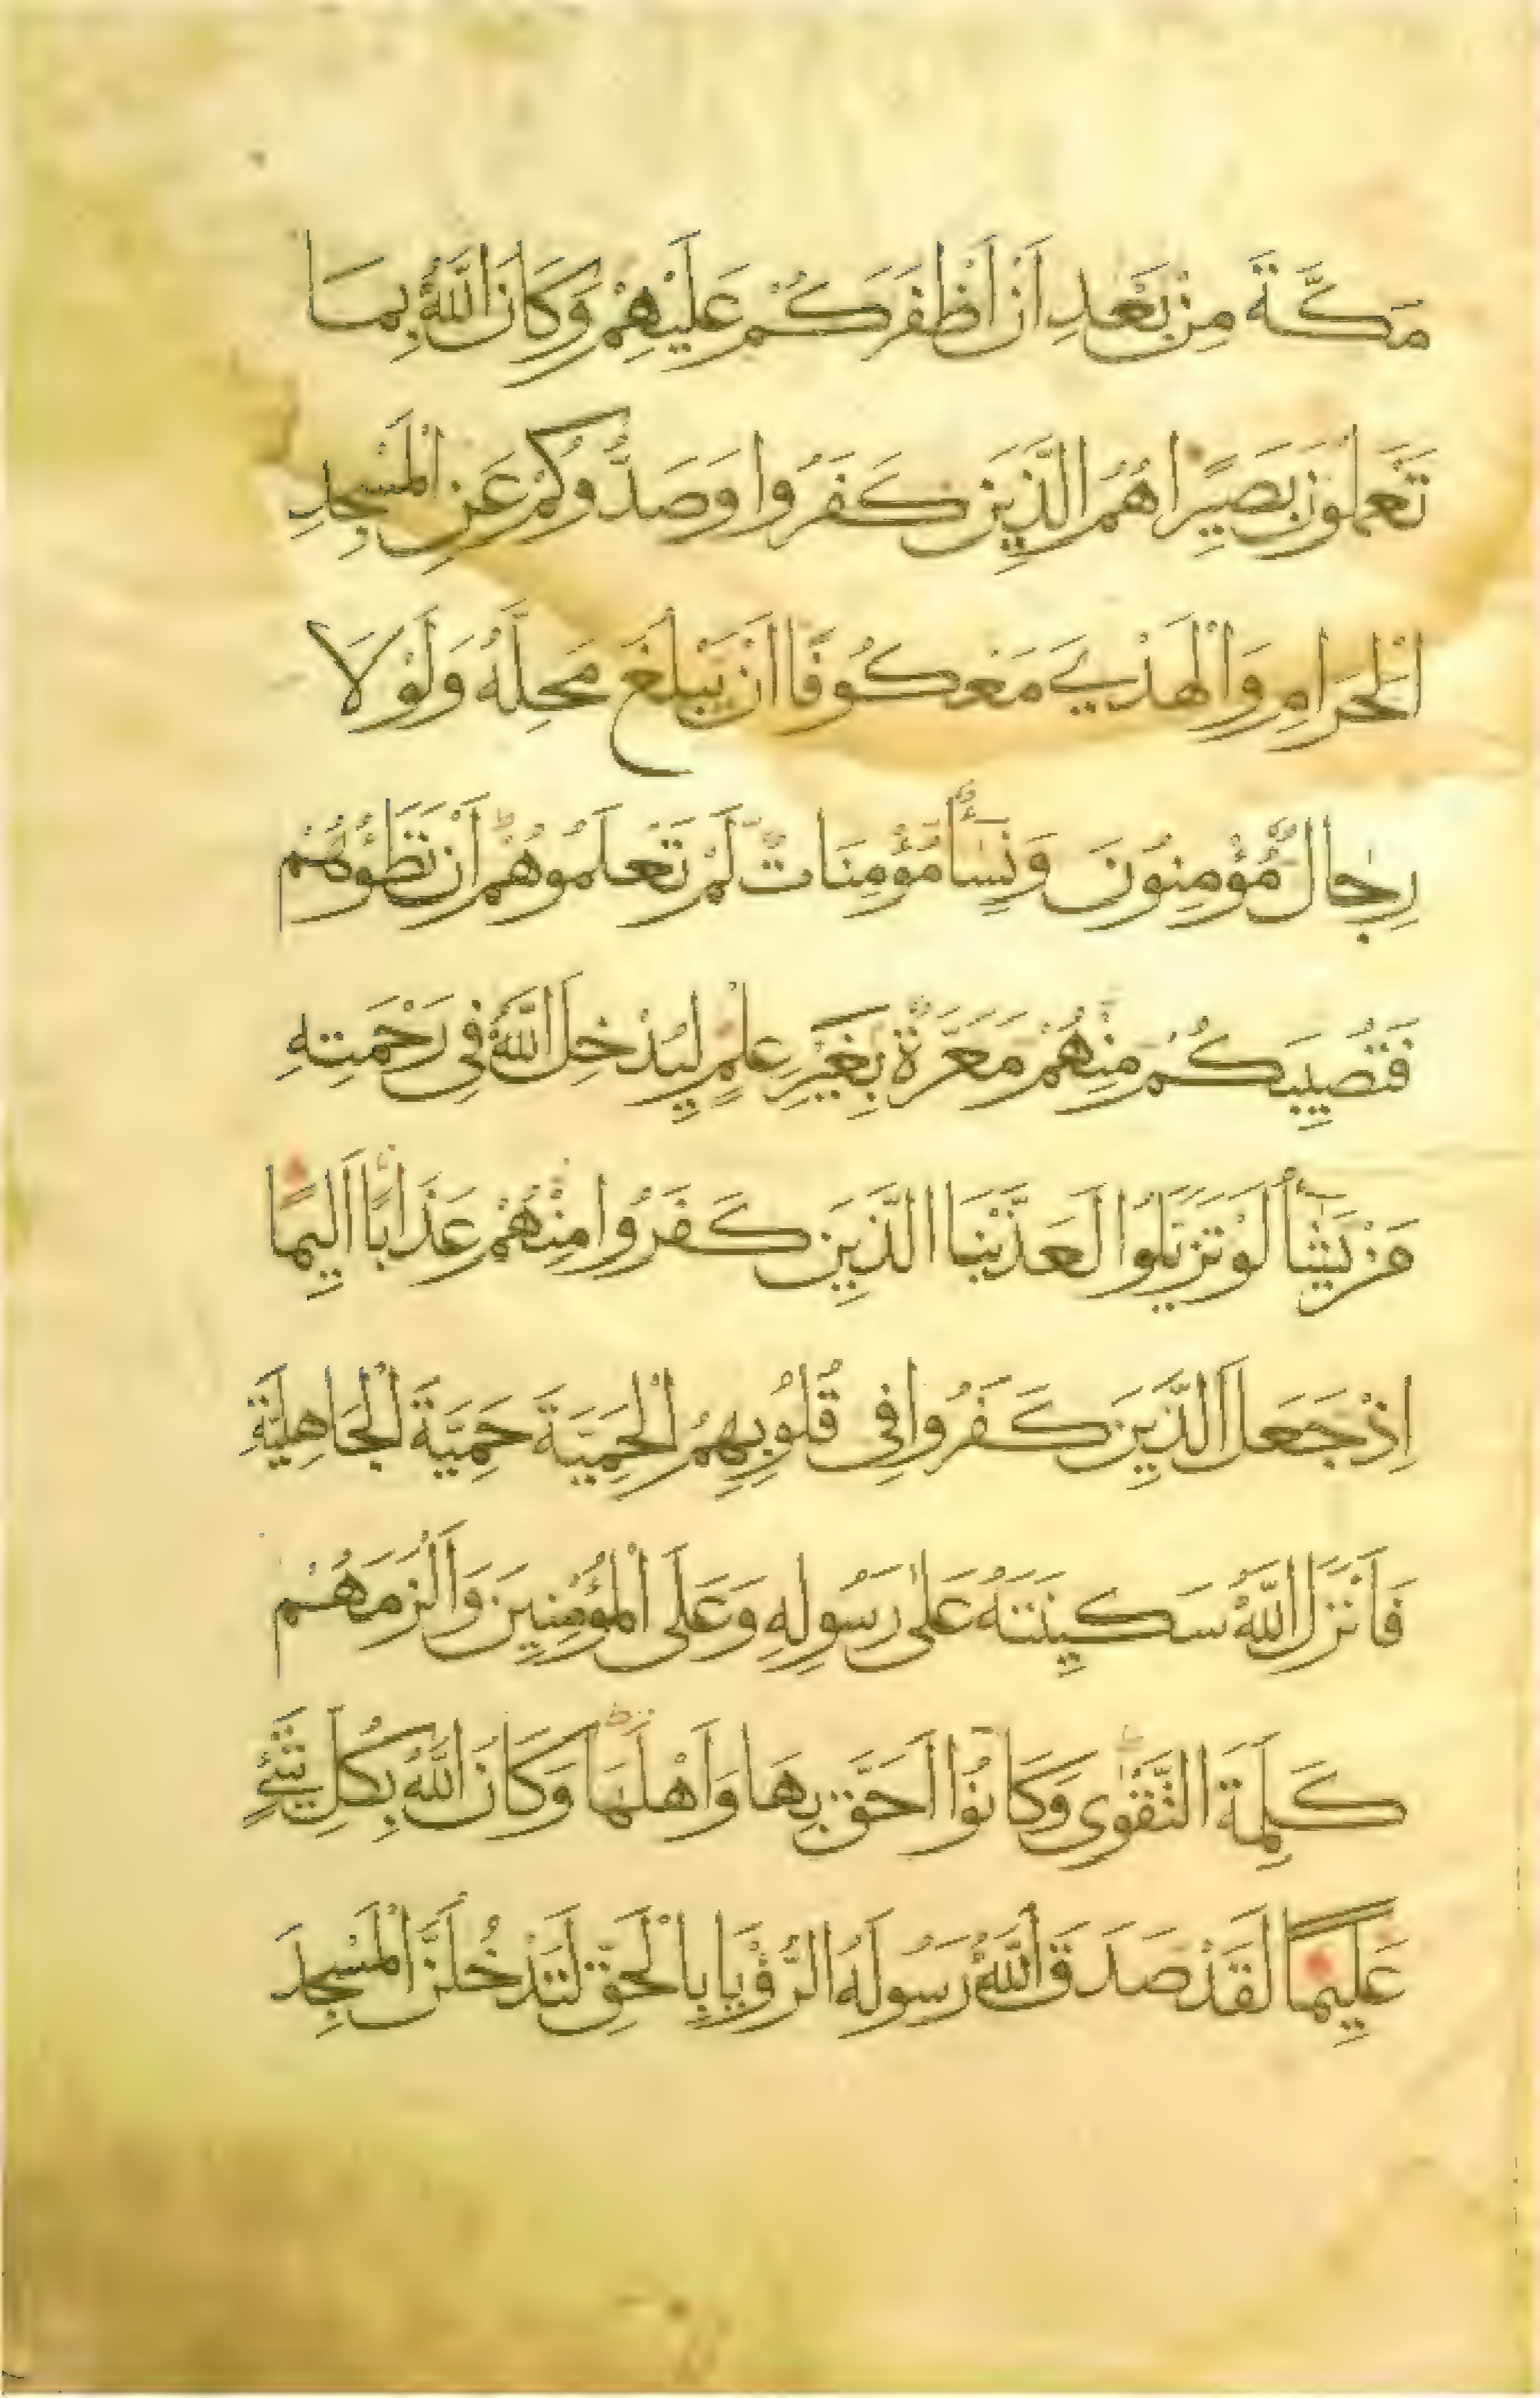 مَكَّةَ مِنْ بَعْدِ اَنْ اَظْفَرَكُمْ عَلَيْهِمْ وَكَانَ اللّٰهُ بِمَا
تَعْمَلُونَ بَصِيرًا هُمُ الَّذِينَ كَفَرُوا وَصَدُّوكُمْ عَنِ الْمَسْجِدِ
الْحَرَامِ وَالْهَدْيَ مَعْكُوفًا اَنْ يَبْلُغَ مَحِلَّهُ وَلَوْلَا
رِجَالٌ مُؤْمِنُونَ وَنِسَاءٌ مُؤْمِنَاتٌ لَمْ تَعْلَمُوهُمْ اَنْ تَطَؤُهُمْ
فَتُصِيبَكُمْ مِنْهُمْ مَعَرَّةٌ بِغَيْرِ عِلْمٍ لِيُدْخِلَ اللّٰهُ فِى رَحْمَتِهِ
مَنْ يَشَاءُ لَوْ تَزَيَّلُوا لَعَذَّبْنَا الَّذِينَ كَفَرُوا مِنْهُمْ عَذَابًا اَلِيمًا
اِذْ جَعَلَ الَّذِينَ كَفَرُوا فِى قُلُوبِهِمُ الْحَمِيَّةَ حَمِيَّةَ الْجَاهِلِيَّةِ
فَاَنْزَلَ اللّٰهُ سَكِينَتَهُ عَلٰى رَسُولِهِ وَعَلَى الْمُؤْمِنِينَ وَاَلْزَمَهُمْ
كَلِمَةَ التَّقْوٰى وَكَانُوا اَحَقَّ بِهَا وَاَهْلَهَا وَكَانَ اللّٰهُ بِكُلِّ شَيْءٍ
عَلِيمًا لَقَدْ صَدَقَ اللّٰهُ رَسُولَهُ الرُّؤْيَا بِالْحَقِّ لَتَدْخُلُنَّ الْمَسْجِدَ